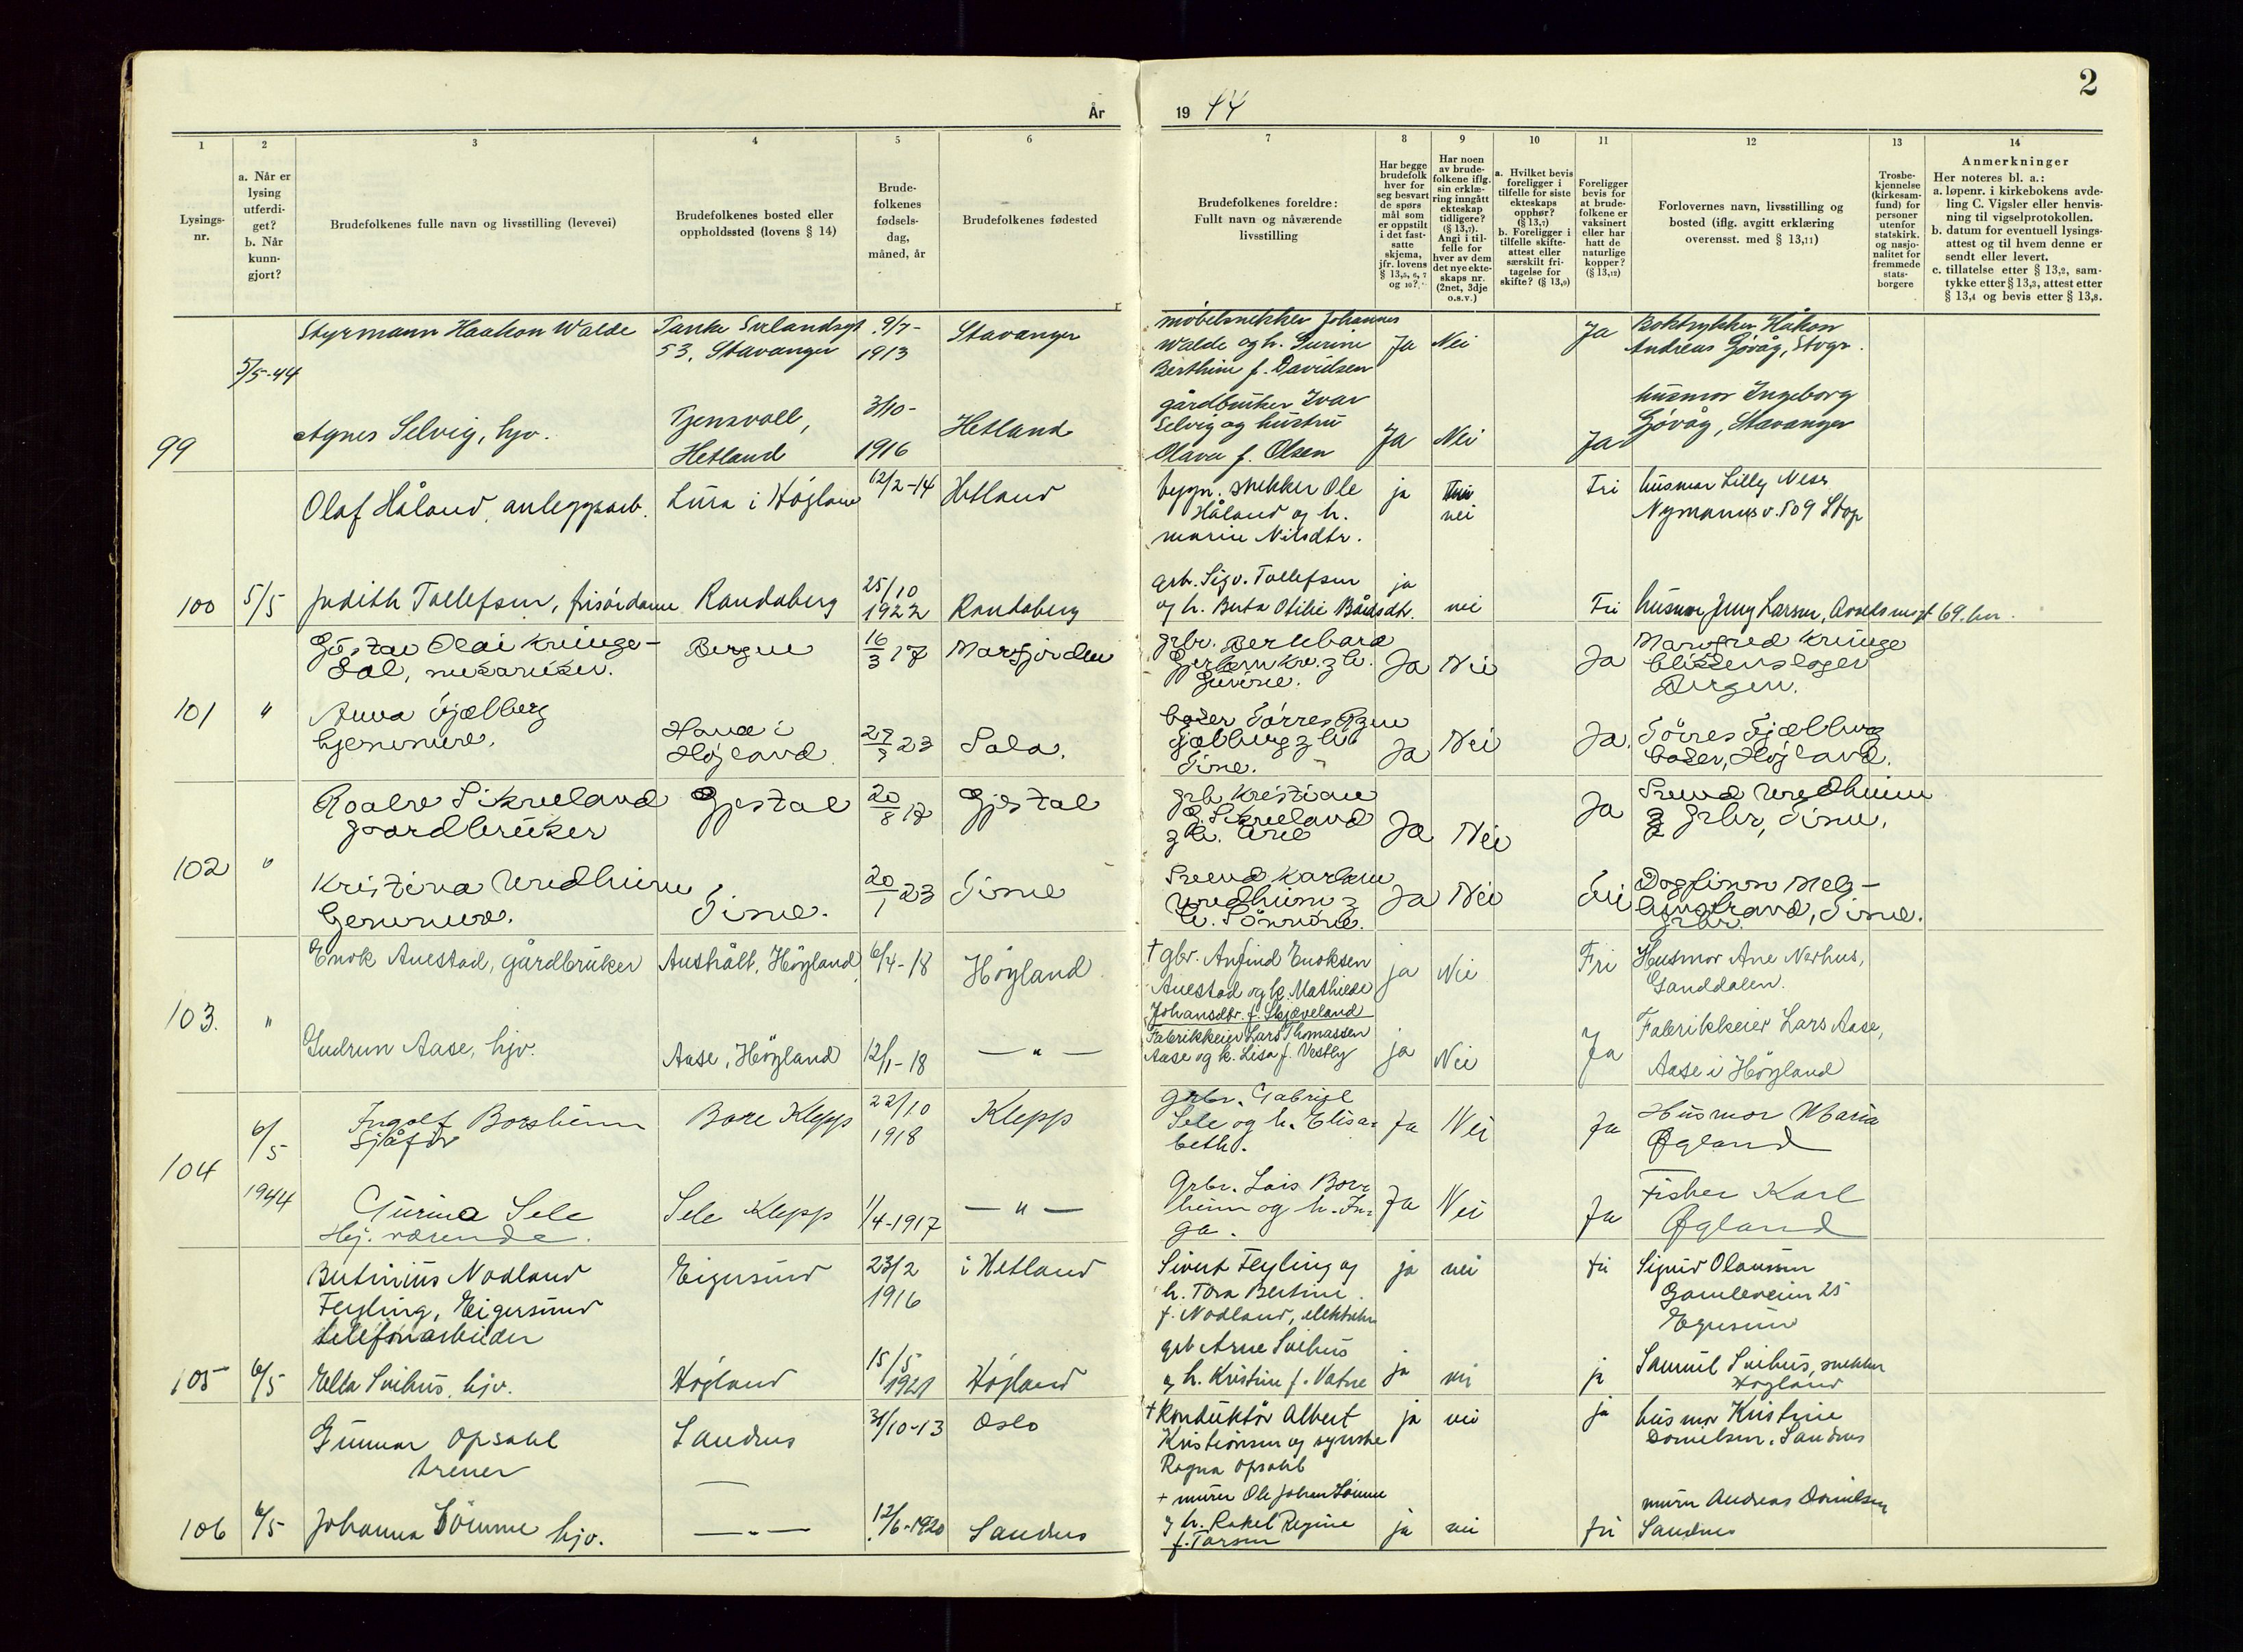 2
År 19 44
1
2
3
4
5
6
7
8
9
10
11
12
13
14
Lysings-
nr.
a. Når er
lysing
utferdi-
get?
b. Når
kunn-
gjort?
Brudefolkenes fulle navn og livsstilling (levevei)
Brudefolkenes bosted eller
oppholdssted (lovens § 14)
Brude-
folkenes
fødsels-
dag,
måned, år
Brudefolkenes fødested
Brudefolkenes foreldre:
Fullt navn og nåværende
livsstilling
Har begge
brudefolk
hver for
seg besvart
de spørs
mål som
er oppstilt
i det fast-
satte
skjema,
jfr. lovens
§ 13,5, 6, 7
og 10?
Har noen
av brude-
folkene iflg.
sin erklæ-
ring inngått
ekteskap
tidligere?
(§ 13,7).
Angi i til-
felle for
hver av dem
det nye ekte-
skaps nr.
(2net, 3dje
o.s.v.)
a. Hvilket bevis
foreligger i
tilfelle for siste
ekteskaps
opphør?
(§ 13,7)
b. Foreligger i
tilfelle skifte-
attest eller
særskilt fri-
tagelse for
skifte? (§ 13,9)
Foreligger
bevis for
at brude-
folkene er
vaksinert
eller har
hatt de
naturlige
kopper?
(§ 13,12)
Forlovernes navn, livsstilling og
bosted (iflg. avgitt erklæring
overensst. med § 13,11)
Trosbe-
kjennelse
(kirkesam-
fund) for
personer
utenfor
statskirk.
og nasjo-
nalitet for
fremmede
stats-
borgere
Anmerkninger
Her noteres bl. a.:
a. løpenr. i kirkebokens avde-
ling C. Vigsler eller henvis-
ning til vigselprotokollen.
b. datum for eventuell lysings-
attest og til hvem denne er
sendt eller levert.
c. tillatelse etter § 13,2, sam-
tykke etter § 13,3, attest etter
§ 13,4 og bevis etter § 13,8.
99
5/5-44
Styrmann Haakon Walde
Tanke Svilandsgt
53, Stavanger
9/7-
1913
Stavanger
møbelsnekker Johannes
Walde og h. Surine
Berthine f. Davidsen
Ja
Nei
Ja
Boktrykker Håkon
Andreas Gjøvåg, Stvgr.
Agnes Selvig, hjv.
Tjensvoll,
Hetland
3/10-
1916
Hetland
gårdbruker Ivar
Selvig og hustru
Olava f. Olsen
Ja
Nei
Ja
husmor Ingeborg
Gjøvåg, Stavanger
100
5/5
Olaf Håland, anleggsarb.
Lura i Høyland
12/2-14
Hetland
bygn. snekker Ole
Håland og h.
marie Nilsdtr.
ja
nei
Fri
husmor Lilly Ness
Nymannsv. 509 Stvgr
Judith Tollefsen, frisördame
Randaberg
25/10
1922
Randaberg
grb. Sigv. Tollefsen
og h. Berta Otilie Bårdsdtr.
ja
nei
Fri
husmor Jenny Larsen, 69. her.
101
"
Gustav Olai Kringe-
dal, mekaniker.
Bergen
16/3 17
Masfjorden
grbr. Bernhard
Ja
Nei
Ja
Manfred Kringe
blikkenslager
Bergen.
Anna Fjælberg
hjemmev.
Hana i
Højland.
27/3 23
Sola.
baker Tørres
Fjælberg & h.
Tine.
Ja
Nei
Ja.
Tørres Fjælberg
baker, Højland.
102
"
Roald Sikveland
gaardbruker
Gjestal
20/8 17
Gjestal
grb Kristian
G. Sikveland
& h. Ane
Ja
Nei
Ja
Svend Undheim
grbr, Time.
Kristina Undheim
hjemmev.
Time.
20/1 23
Time
Svend Karlsen
Undheim &
h. Sønnøve.
Ja
Nei
Fri
Dagfinn Mely-
grbr. Time.
103.
"
Enok Auestad, gårdbruker
Austrått, Höyland
6/4-18
Höyland
† gbr. Anfind Enoksen
Auestad og k. Mathilde
Johansdtr. f. Skjæveland
ja
Nei
Fri
Husmor Ane Nerhus,
Ganddalen.
Gudrun Aase, hjv.
Aase, Höyland
12/1-18
— " —
Fabrikkeier Lars Thomassen
Aase og k. Lisa f. Vestly
ja
Nei
Ja
Fabrikkeier Lars Aase,
Aase i Höyland
104
6/5
1944
Ingolf Borsheim
Sjåfør
Bore Klepp
22/10
1918
Klepp
Grbr. Gabriel
Sele og h. Elisa-
beth.
Ja
Nei
Ja
Husmor Maria
Øgland
Gurina Sele
Hj. værende.
Sele Klepp
1/4-1917
— " —
Grbr. Lars Bors-
heim og h. In-
ga.
Ja
Nei
Ja
Fisker Karl
Øgland
105
6/5
Bertinius Nodland
Feyling, Eigersund
telefonarbeider
Eigersund
23/2
1916
i Hetland
Sivert Feyling og
h. Tora Bertine
f. Nodland,
ja
nei
fri
Sigurd Olaussen
Gamleveien 25
Egersund
Ella Svihus, hjv.
Høyland
15/5
1921
Høyland
grb Arne Svihus
og h. Kristine f. Vatne
ja
nei
ja
Samuel Svihus, snekker
Høyland
106
6/5
Gunnar Opsahl
trener
Sandnes
31/10-13
Oslo
† Konduktör Albert
Kristiansen og syerske
Ragna Opsahl
ja
nei
ja
husmor Kristine
Danielsen, Sandnes
Johanna Lömme hjv.
— " —
12/6-1920
Sandnes
+ murer Ole Johan Lömme
og h. Rakel Regine
f. Tarsen
ja
nei
fri
murer Andreas Danielsen
Sandnes